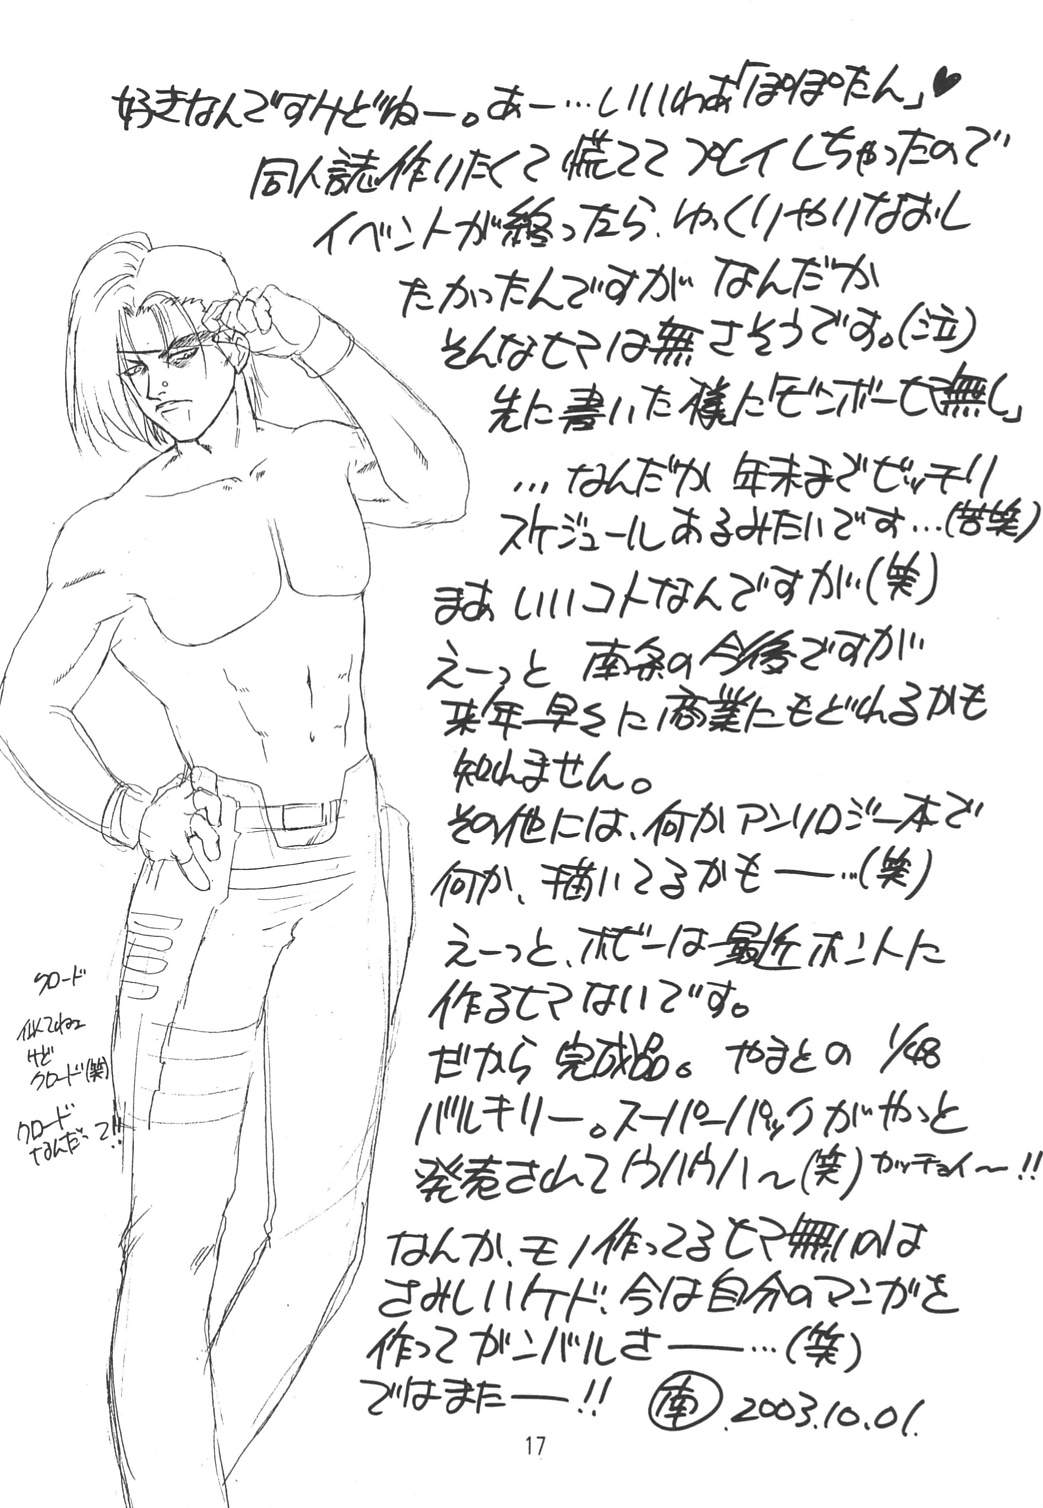 好きなんですけどねー。あー…いいわぁ「ぽぽたん」♥
同人誌作りたくて慌ててプレイしちゃったので
イベントが終ったら、ゆっくりやりなおし
たかったんですがなんだか
そんなヒマは無さそうです。(泣)
先に書いた様に「ビンボーヒマ無し」
…なんだか年末までビッチリ
スケジュールあるみたいです…(苦笑)
まぁいいコトなんですが…(笑)
えーっと 南条の今後ですが
来年早々に商業にもどれるかも
知れません。
その他には、何かアンソロジー本で
何か、描いてるかもー…(笑)
えーっと、ホビーは最近ホントに
作るヒマないです。
だから完成品。やまとの1/48
バルキリー。スーパーパックがやっと
発売されてウハウハ〜(笑)カッチョイ〜!!
なんか、モノ作ってるヒマ無いのは
さみしいケド、今は自分のマンガを
作ってガンバルさー…(笑)
ではまたー!! 南 .2003.10.01.
クロード
似てねェ
けど
クロード(笑)
クロード
なんだって!!
17